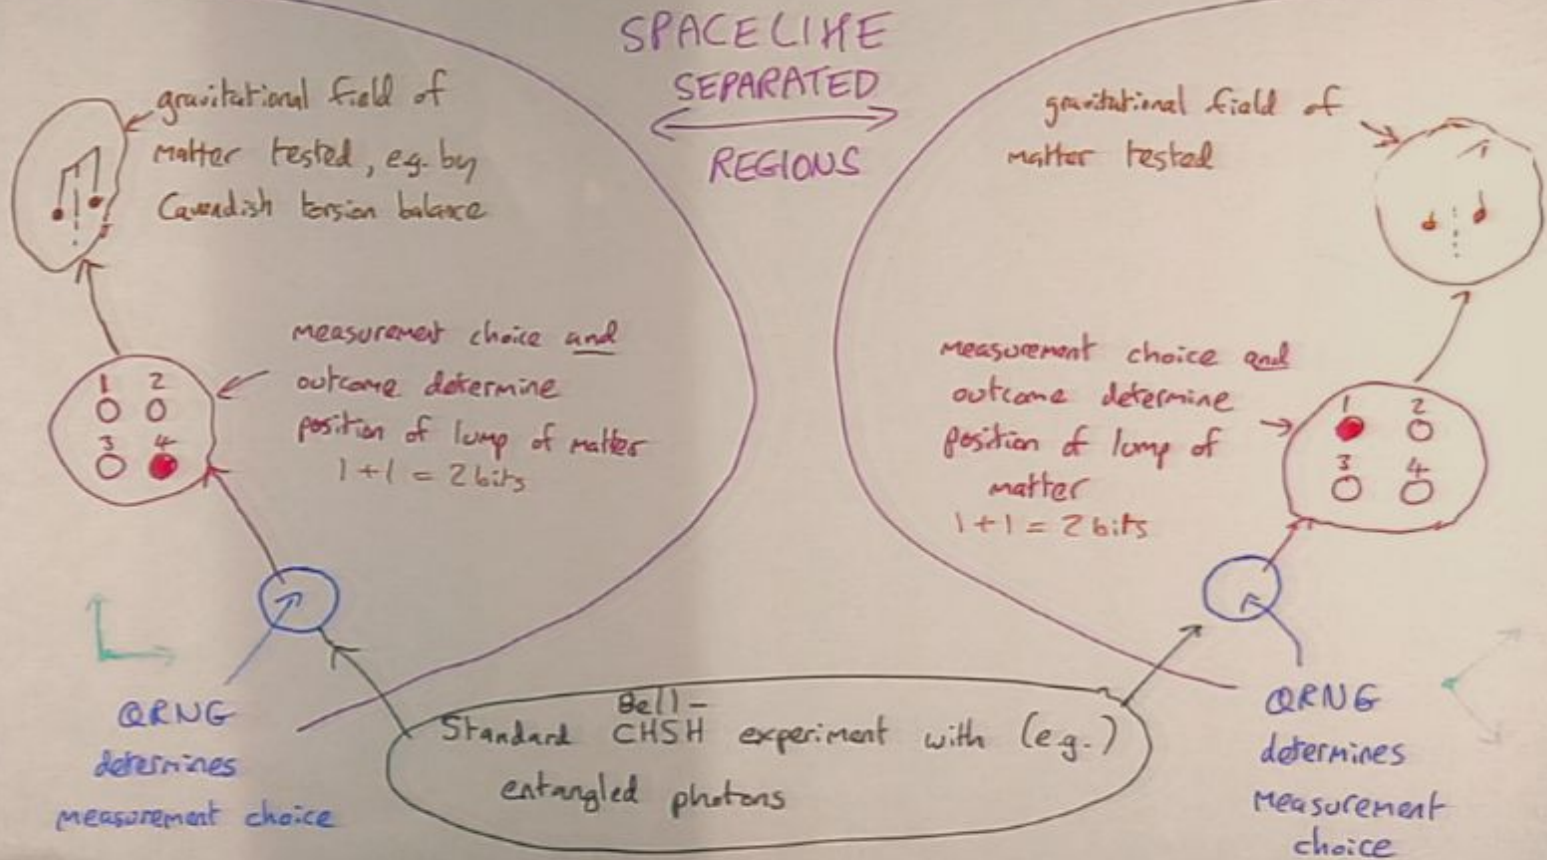 SPACELIKE
SEPARATED
REGIONS
gravitational field of
matter tested, e.g. by
Cavendish torsion balance
measurement choice and
outcome determine
position of lump of matter
1 + 1 = 2 bits
1 2
3 4
QRNG
determines
measurement choice
Bell-
Standard CHSH experiment with (e.g.)
entangled photons
gravitational field of
matter tested
measurement choice and
outcome determine
position of lump of
matter
1 + 1 = 2 bits
1 2
3 4
QRNG
determines
measurement
choice